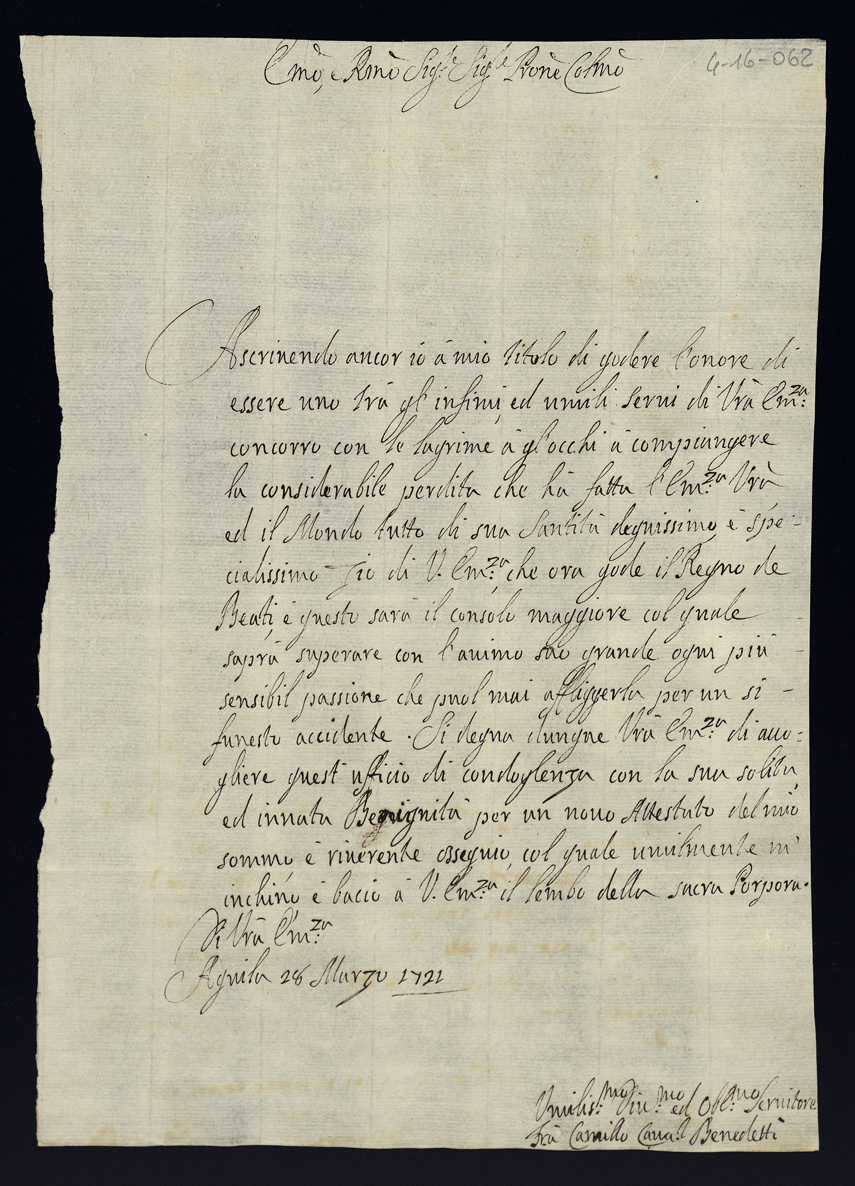 Emò, e Rmò Sig.r Sig.r Pròne Colmò
4-16-062
Ascrivendo ancor io à mio titolo di godere l'onore di
essere uno trà gl'infimi, ed umili servi di Vrà Em.za
concorro con le lagrime à gl'occhi à compiangere
la considerabile perdita che hà fatta l'Em.za Vrà
ed il Mondo tutto di sua Santità degnissimo, e spe-
cialissimo Zio di V. Em.za, che ora gode il Regno de
Beati, e questo sarà il consolo maggiore col quale
saprà superare con l'animo suo grande ogni più
sensibil passione che puol mai affliggerla per un si
funesto accidente. Si degna dunque Vrà Em.za di acco-
gliere quest'ufficio di condoglienza con la sua solita,
ed innata Benignità per un novo Attestato del mio
sommo e riverente ossequio, col quale umilmente m'
inchino e bacio à V. Em.za il lembo della sacra Porpora.
Di Vrà Em.za
Aquila 28 Marzo 1721
Umilis.mo Div.mo ed Obl.mo Servitore
Frà Camillo Caval. Benedetti